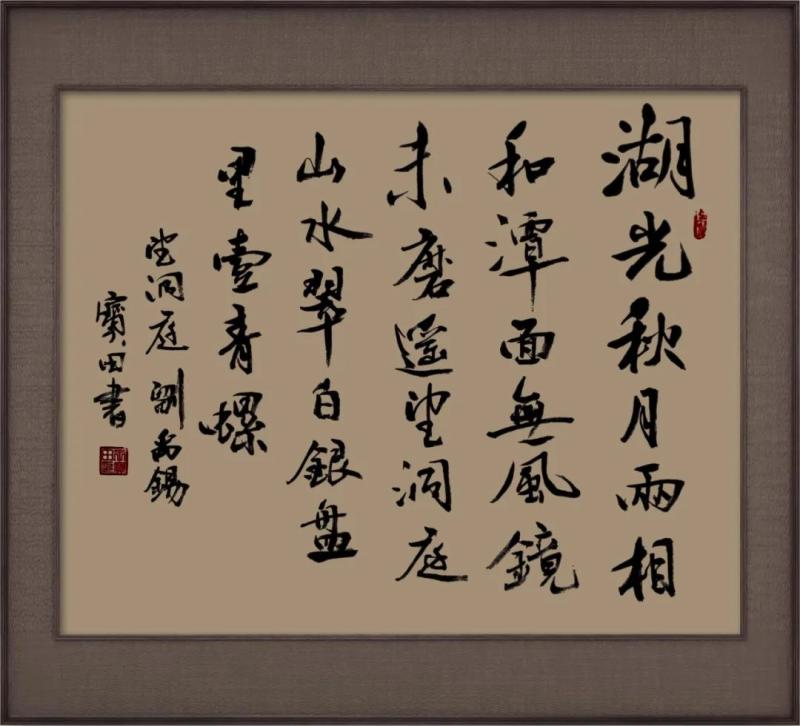 湖光秋月兩相
和潭面無風鏡
未磨遥望洞庭
山水翠白銀盤
里壹青螺
望洞庭 劉禹錫
寶田書